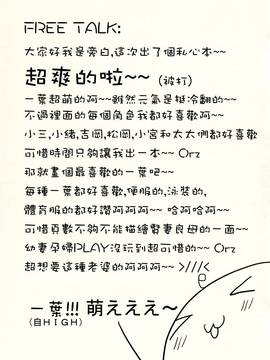 FREE TALK:
大家好我是旁白,這次出了個私心本~~
超爽的啦~~ (被打)
一葉超萌的阿~~雖然元氣是挺冷翻的~~
不過裡面的每個角色我都好喜歡阿~~
小三,小緒,吉岡,松岡,小宮和太太們都好喜歡
可惜時間只夠讓我出一本~~ Orz
那就畫個最喜歡的一葉吧~~
每種一葉都好喜歡,便服的,泳裝的,
體育服的都好讚阿阿阿~~ 哈阿哈阿~~
可惜頁數不夠不能描繪賢妻良母的一面~~
幼妻孕婦PLAY沒玩到超可惜的~~ Orz
超想要這種老婆的阿阿阿~~ >///<
一葉!!! 萌えええ~
(自HIGH)